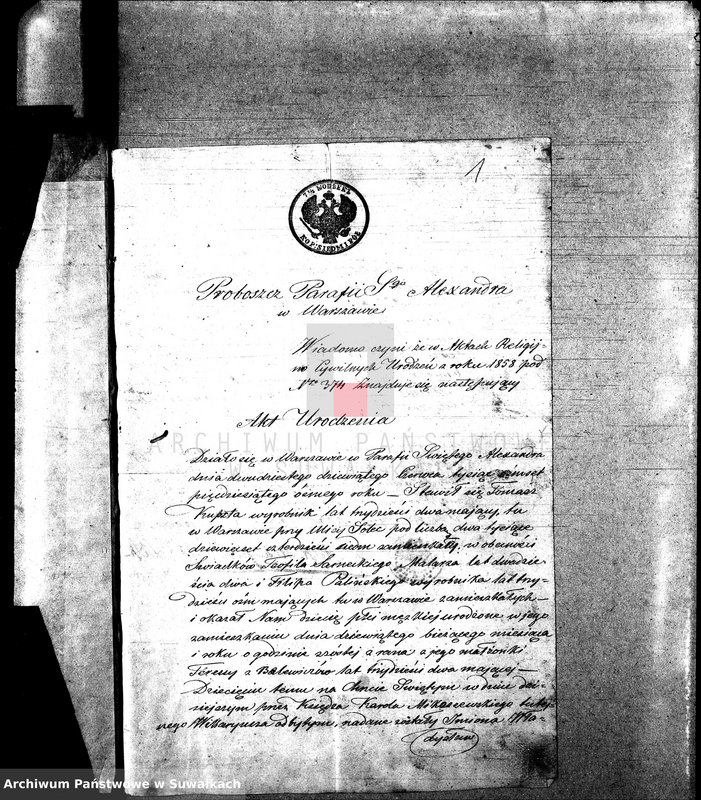 1
7½ КОПѢЕКЪ
KOP. SIEDM I PÓŁ
Proboszcz Parafii Sgo Alexandra
w Warszawie
Wiadomo czyni że w Aktach Religij-
no Cywilnych Urodzeń z roku 1858 pod
Nro 374 znajduje się następujący
Akt Urodzenia
ARCHIWUM PAŃSTWOWE
W SUWAŁKACH
Działo się w Warszawie w Parafii Świętego Alexandra
dnia dwudziestego dziewiątego Czerwca tysiąc ośmset
pięćdziesiątego ósmego roku — Stawił się Tomasz
wyrobnik lat trzydzieści dwa mający, tu
w Warszawie przy Ulicy Solec pod liczbą dwa tysiące
dziewięćset czterdzieści siedm zamieszkały, w obecności
Świadków Teofila Sarneckiego Malarza lat dwadzie-
ścia dwa i Filipa wyrobnika lat trzy-
dzieści ośm mających tu w Warszawie zamieszkałych —
i okazał Nam dziecię płci męzkiej urodzone w jego
zamieszkaniu dnia dziewiątego bieżącego miesiąca
i roku o godzinie szóstej z rana z jego małżonki
Teressy z Balewiczów lat trzydzieści dwa mającej —
Dziecięciu temu na Chrzcie Świętym w dniu dzi-
siejszym przez Księdza Karola Mikoszewskiego tutej-
szego Wikaryusza odbytym, nadane zostały Imiona Wła-
dysław
Archiwum Państwowe w Suwałkach